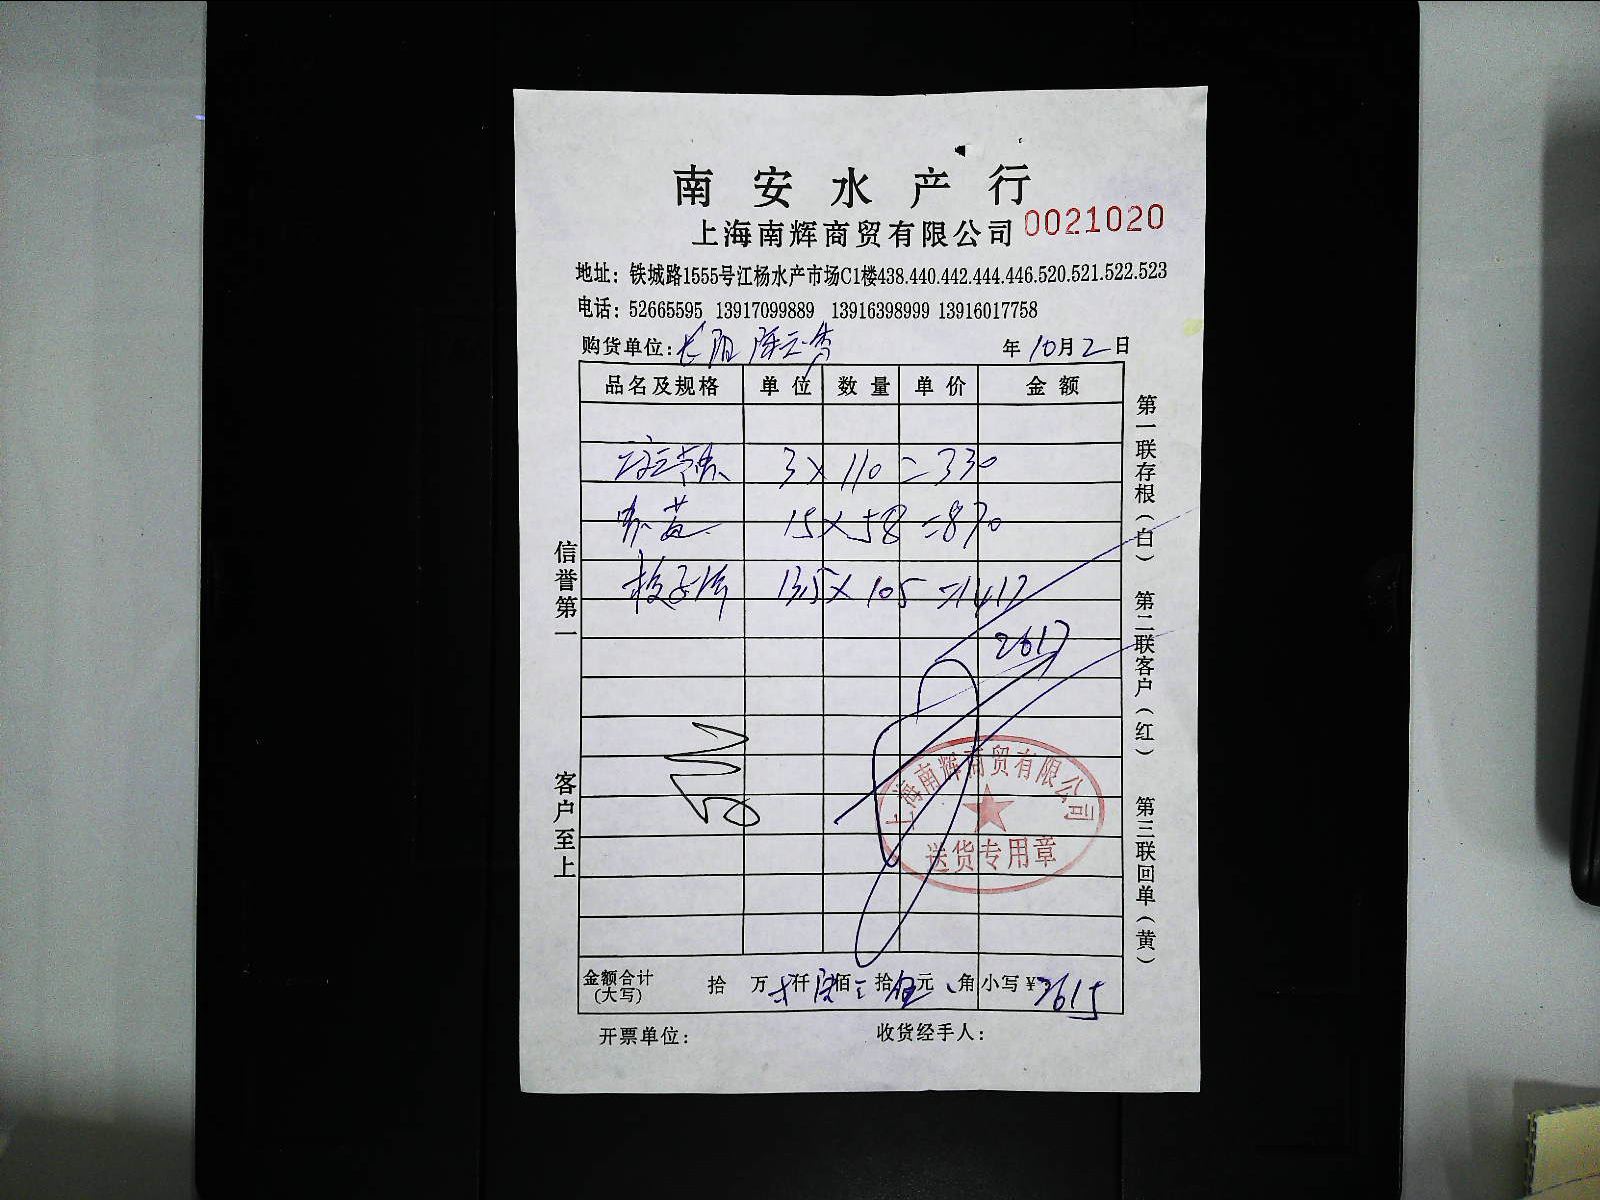 南安水产行
上海南辉商贸有限公司 0021020
地址：铁城路1555号江杨水产市场C1楼438.440.442.444.446.520.521.522.523
电话：52665595 13917099889 13916398999 13916017758
购货单位： 年10月2日
品名及规格 单位 数量 单价 金额
3×110=330
15×58=870
13.5×105=1417
2617
金额合计(大写) 拾 万 仟 佰 拾 伍元 角 小写¥2615
开票单位： 收货经手人：
信誉第一
客户至上
第一联存根（白）
第二联客户（红）
第三联回单（黄）
上海南辉商贸有限公司
送货专用章